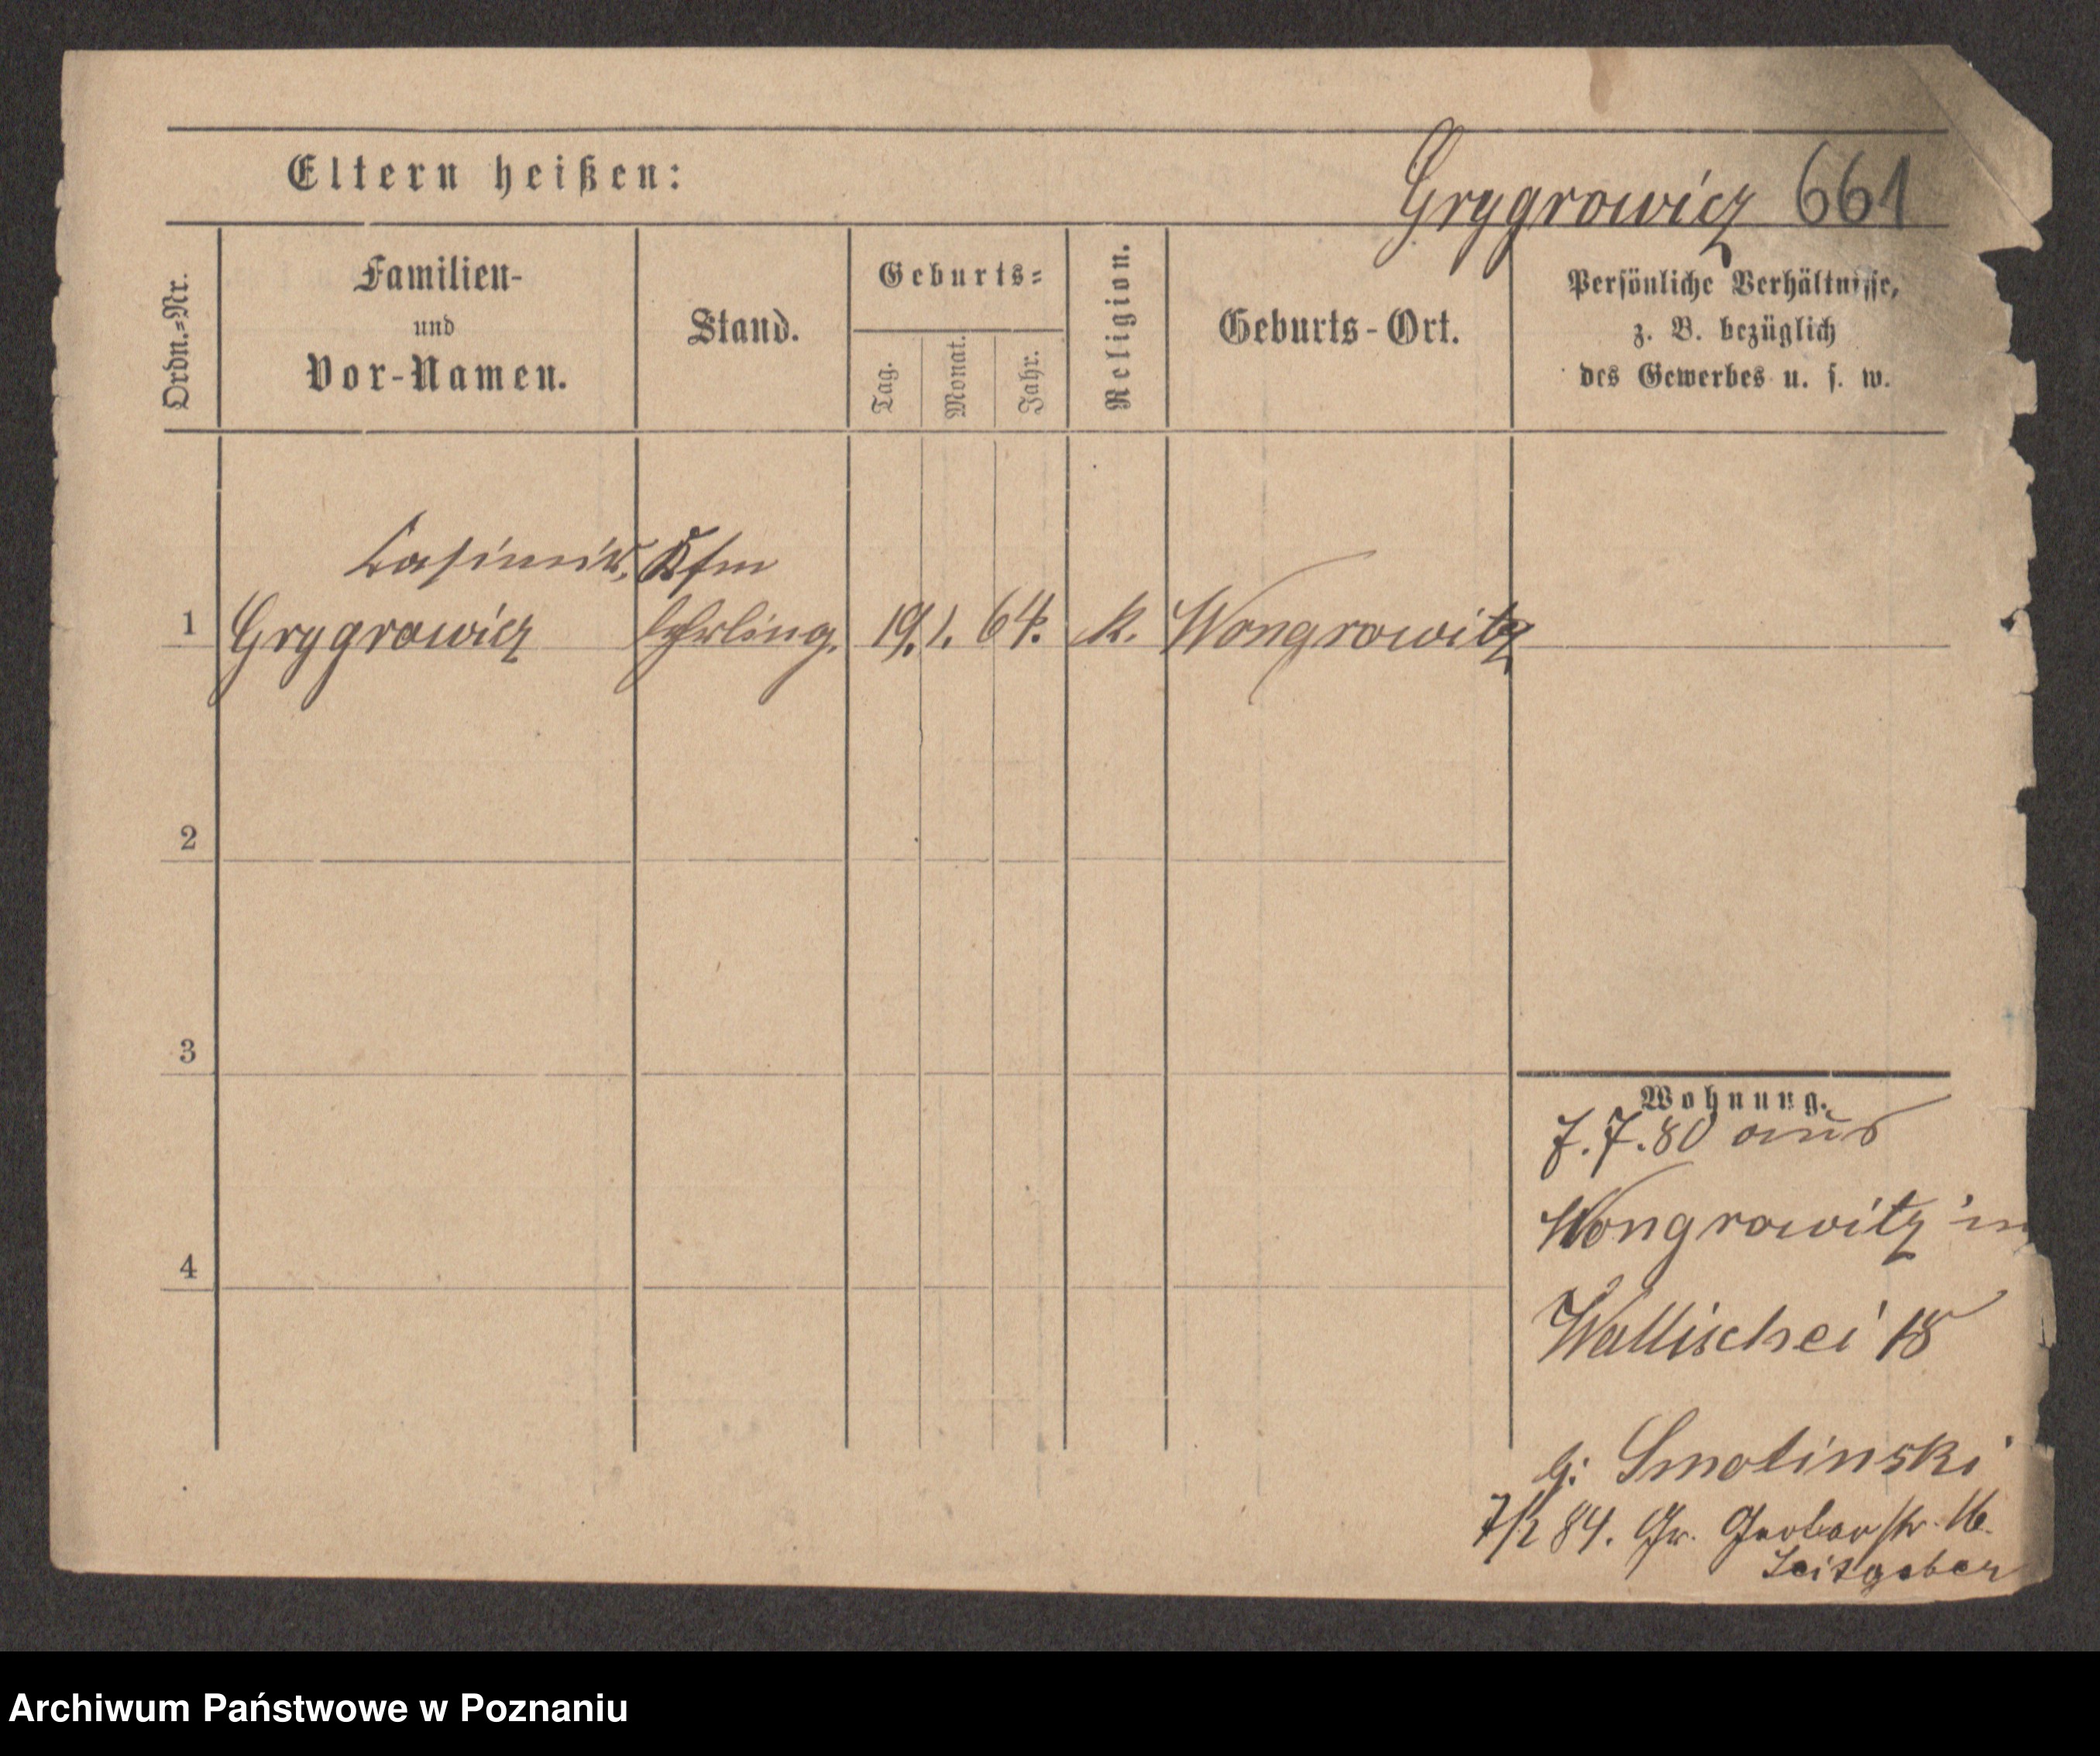 Eltern heißen:
Grygrowicz 661
Ordn.=Nr.
Familien-
und
Vor-Namen.
Stand.
Geburts=
Tag.
Monat.
Jahr.
Religion.
Geburts-Ort.
Persönliche Verhältnisse,
z. B. bezüglich
des Gewerbes u. s. w.
Casimir, Kfm
1 Grygrowicz Lehrling. 19. 1. 64. k. Wongrowitz
2
3
4
Wohnung.
7.7.80 aus
Wongrowitz in
Wallischei 18
b: Smolinski
84. Gr. Gerberstr. 16.
Leitgeber
Archiwum Państwowe w Poznaniu